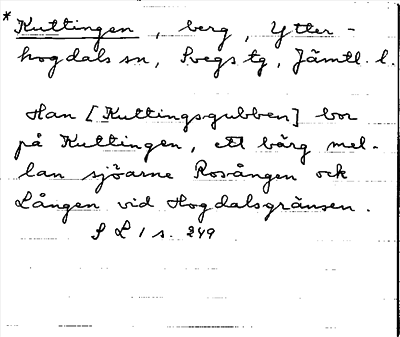 * Kuttingen, berg, Ytter-
hogdals sn, Svegs tg, Jämtl. l.
Han [Kuttingsgubben] bor
på Kuttingen, ett bärg mel-
lan sjöarne Rosången ock
Lången vid Hogdalsgränsen.
S L 1 s. 249